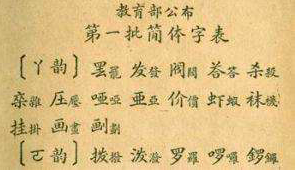 教育部公布
第一批简体字表
〔ㄚ韵〕罢罷 发發 阀閥 荅答 杀殺
杂雜 压壓 哑啞 亚亞 价價 虾蝦 袜襪
挂掛 画畫 㓰劃
〔ㄛ韵〕拨撥 泼潑 罗羅 啰囉 锣鑼